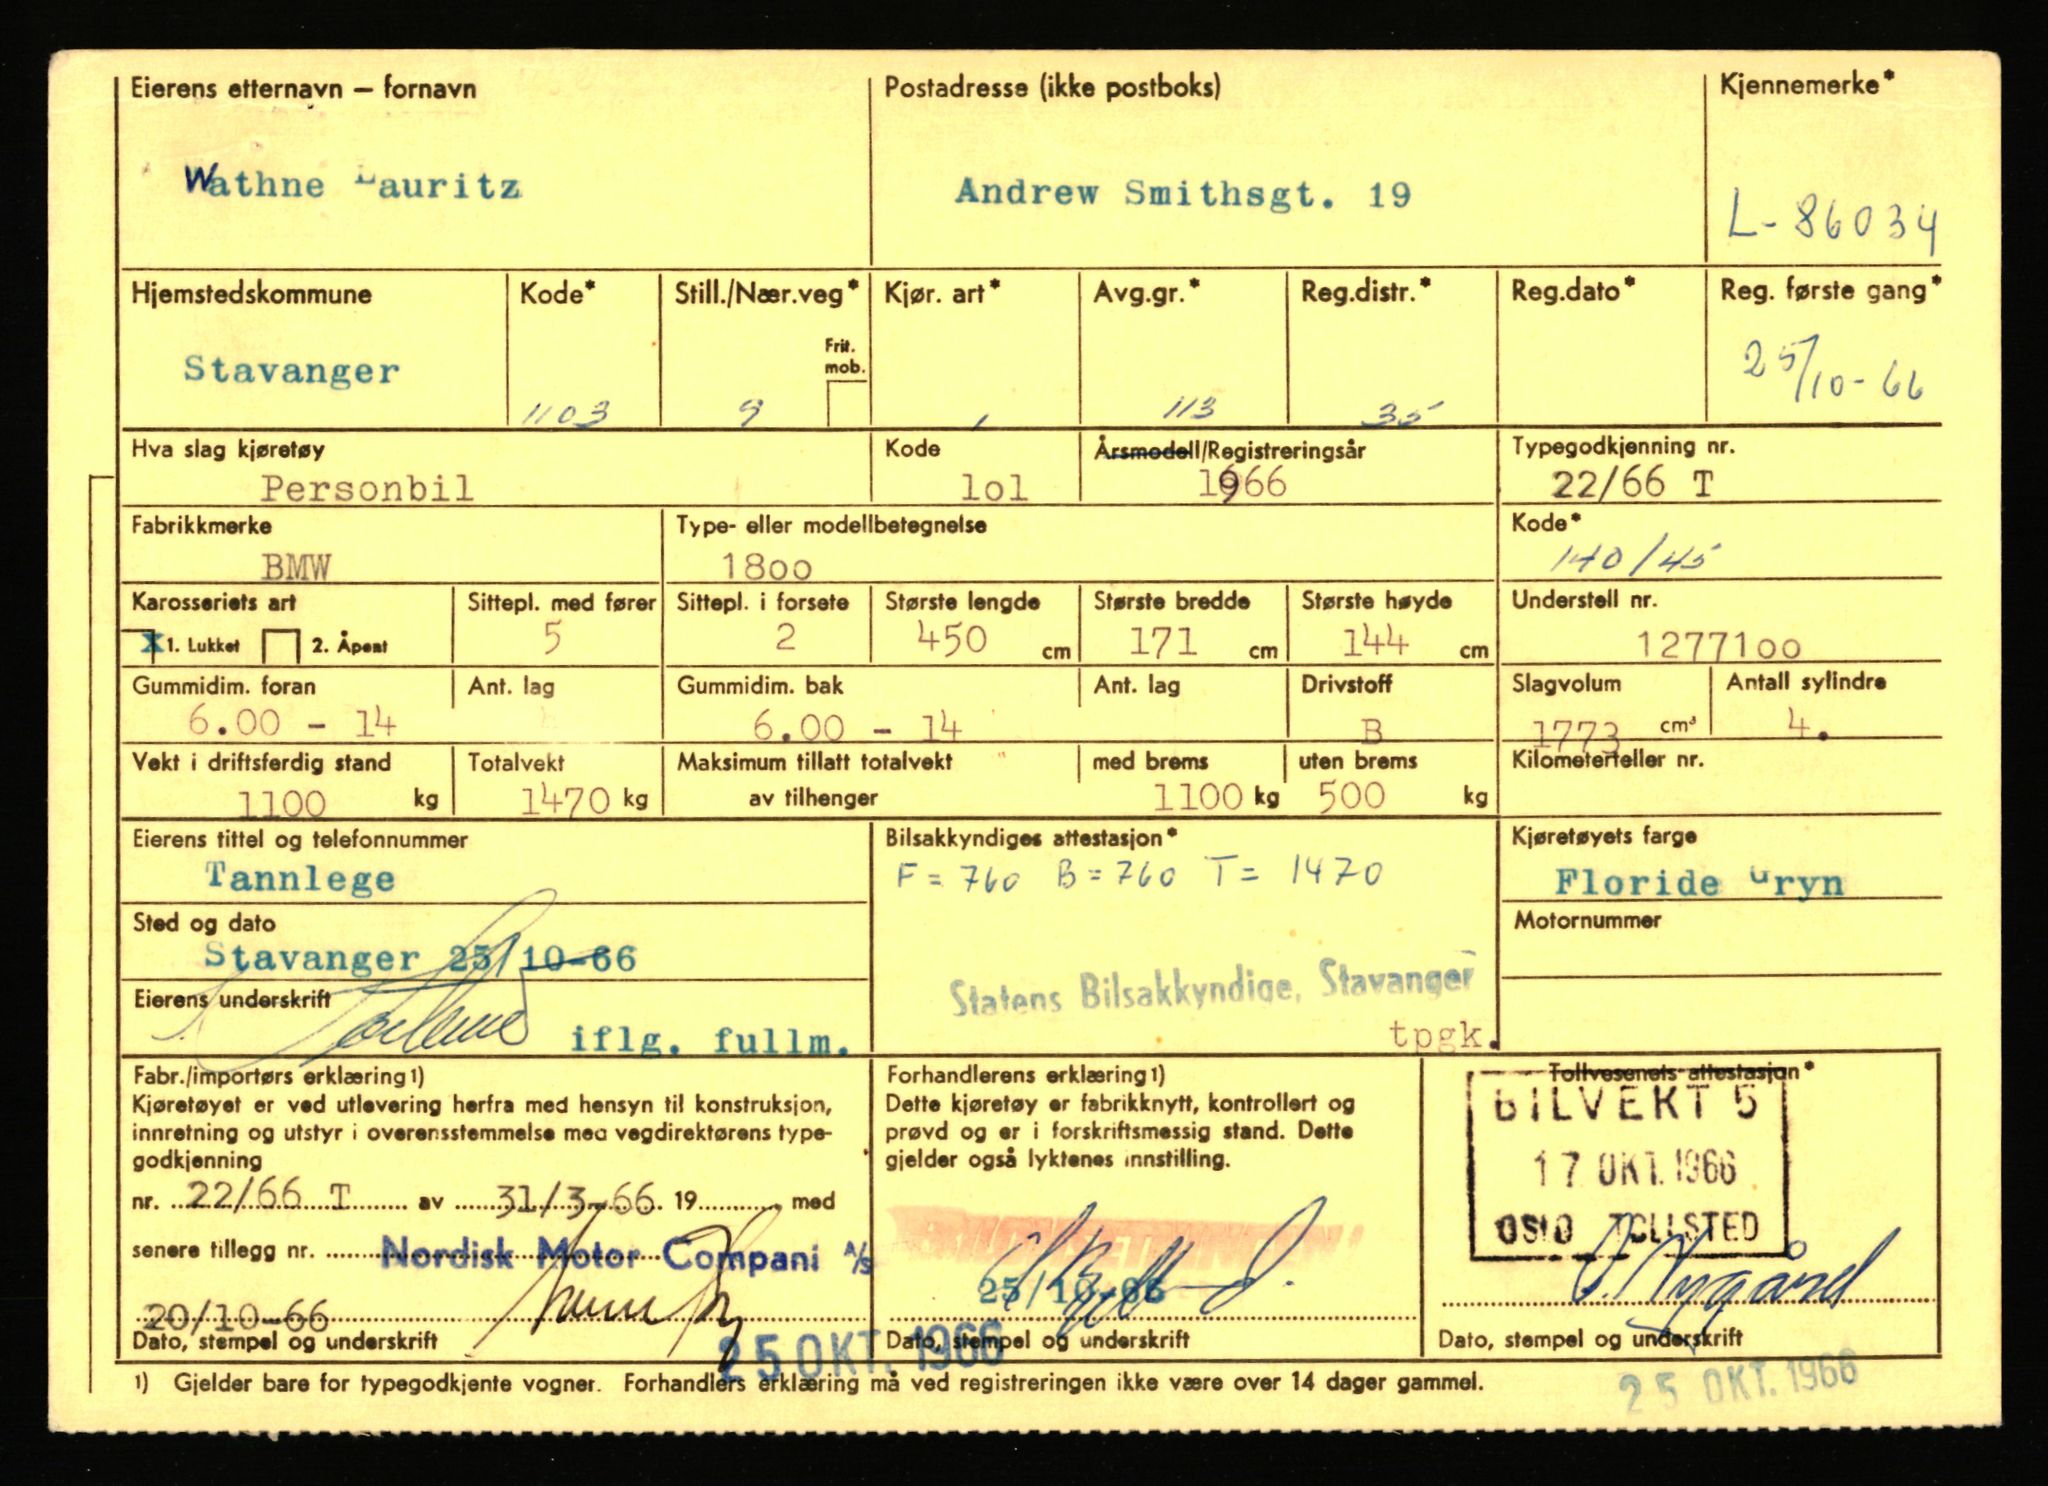 Eierens etternavn – fornavn
Postadresse (ikke postboks)
Kjennemerke*
Wathne Lauritz
Andrew Smithsgt. 19
L-86034
Hjemstedskommune
Kode*
Still./Nær.veg*
Kjør. art*
Avg.gr.*
Reg.distr.*
Reg.dato*
Reg. første gang*
Frit. mob.
Stavanger
1103
9
1
113
35
25/10-66
Hva slag kjøretøy
Kode
Årsmodell/Registreringsår
Typegodkjenning nr.
Personbil
lol
1966
22/66 T
Fabrikkmerke
Type- eller modellbetegnelse
Kode*
BMW
18oo
140/45
Karosseriets art
Sittepl. med fører
Sittepl. i forsete
Største lengde
Største bredde
Største høyde
Understell nr.
X 1. Lukket 2. Åpent
5
2
450 cm
171 cm
144 cm
12771oo
Gummidim. foran
Ant. lag
Gummidim. bak
Ant. lag
Drivstoff
Slagvolum
Antall sylindre
6.00 - 14
6.00 - 14
B
1773 cm³
4.
Vekt i driftsferdig stand
Totalvekt
Maksimum tillatt totalvekt
med brems
uten brems
Kilometerteller nr.
1100 kg
1470 kg
av tilhenger
1100 kg
500 kg
Eierens tittel og telefonnummer
Bilsakkyndiges attestasjon*
Kjøretøyets farge
Tannlege
F = 760 B = 760 T = 1470
Floride Gryn
Sted og dato
Motornummer
Stavanger 25/10-66
Statens Bilsakkyndige, Stavanger
Eierens underskrift
iflg. fullm.
tpgk.
Fabr./importørs erklæring 1)
Kjøretøyet er ved utlevering herfra med hensyn til konstruksjon,
innretning og utstyr i overensstemmelse med vegdirektørens type-
godkjenning
nr. 22/66 T av 31/3-66 19 med
senere tillegg nr.
Nordisk Motor Compani A/S
20/10-66
Dato, stempel og underskrift
Forhandlerens erklæring 1)
Dette kjøretøy er fabrikknytt, kontrollert og
prøvd og er i forskriftsmessig stand. Dette
gjelder også lyktenes innstilling.
25/10-66
Dato, stempel og underskrift
Tollvesenets attestasjon*
BILVEKT 5
17 OKT. 1966
OSLO TOLLSTED
Dato, stempel og underskrift
25 OKT. 1966
1) Gjelder bare for typegodkjente vogner. Forhandlers erklæring må ved registreringen ikke være over 14 dager gammel.
25 OKT. 1966